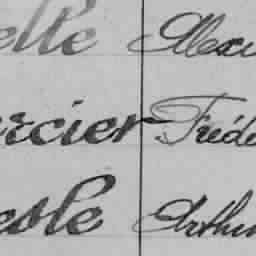 elle Alexi
ercier Fréde
esle Arthu